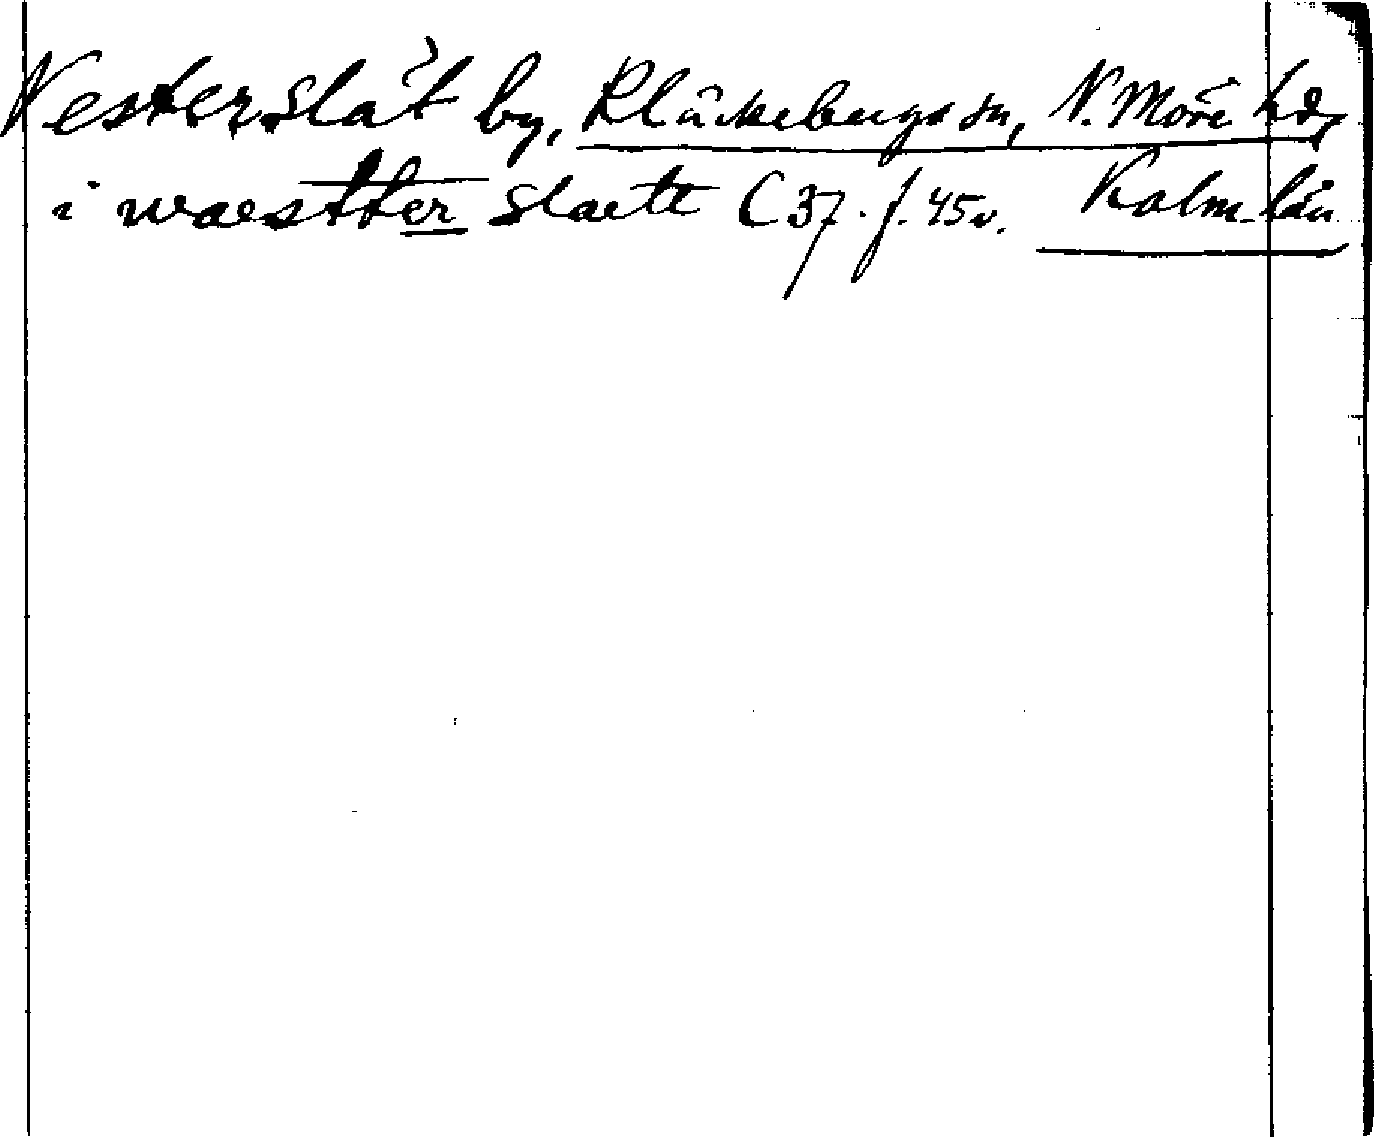 Vesterslät by, Kläckebergs sn, N. Möre hd,
i waestter slaett C 37. f. 45v. Kalm. län